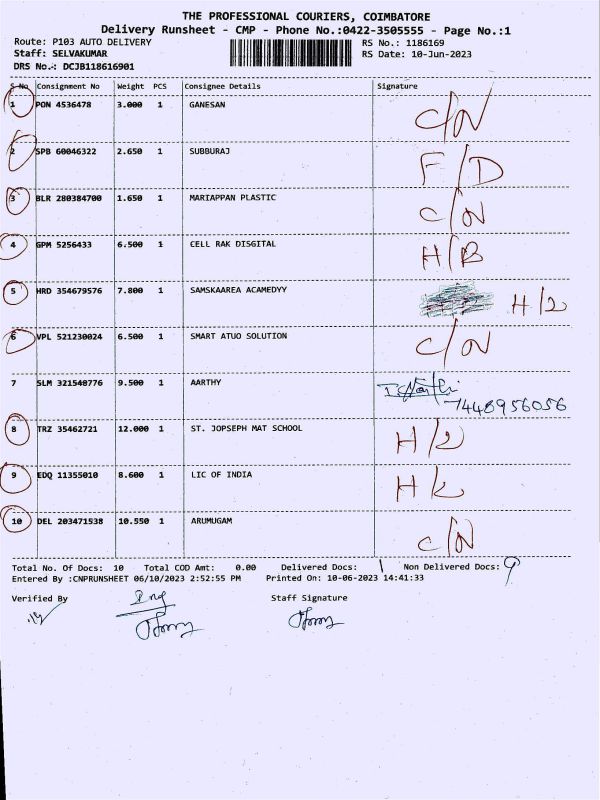 THE PROFESSIONAL COURIERS, COIMBATORE
Delivery Runsheet - CMP - Phone No.:0422-3505555 - Page No.:1
Route: P103 AUTO DELIVERY RS No.: 1186169
Staff: SELVAKUMAR RS Date: 10-Jun-2023
DRS No.: DCJB118616901
S No Consignment No Weight PCS Consignee Details Signature
1 PON 4536478 3.000 1 GANESAN C/N
2 SPB 60046322 2.650 1 SUBBURAJ F/D
3 BLR 280384700 1.650 1 MARIAPPAN PLASTIC C/N
4 GPM 5256433 6.500 1 CELL RAK DISGITAL H/B
5 HRD 354679576 7.800 1 SAMSKAAREA ACAMEDYY H/2
6 VPL 521230024 6.500 1 SMART ATUO SOLUTION C/N
7 SLM 321548776 9.500 1 AARTHY
7448956056
8 TRZ 35462721 12.000 1 ST. JOPSEPH MAT SCHOOL H/2
9 EDQ 11355010 8.600 1 LIC OF INDIA
10 DEL 203471538 10.550 1 ARUMUGAM C/N
Total No. Of Docs: 10 Total COD Amt: 0.00 Delivered Docs: 1 Non Delivered Docs: 9
Entered By :CNPRUNSHEET 06/10/2023 2:52:55 PM Printed On: 10-06-2023 14:41:33
Verified By Staff Signature